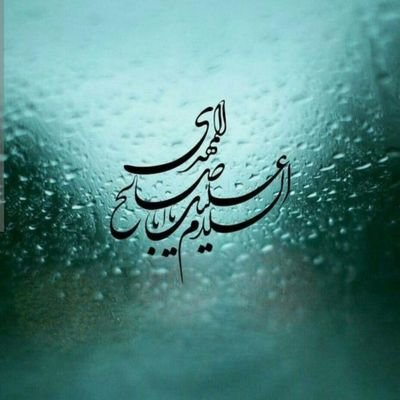 السلام علیک یا ابا صالح المهدی